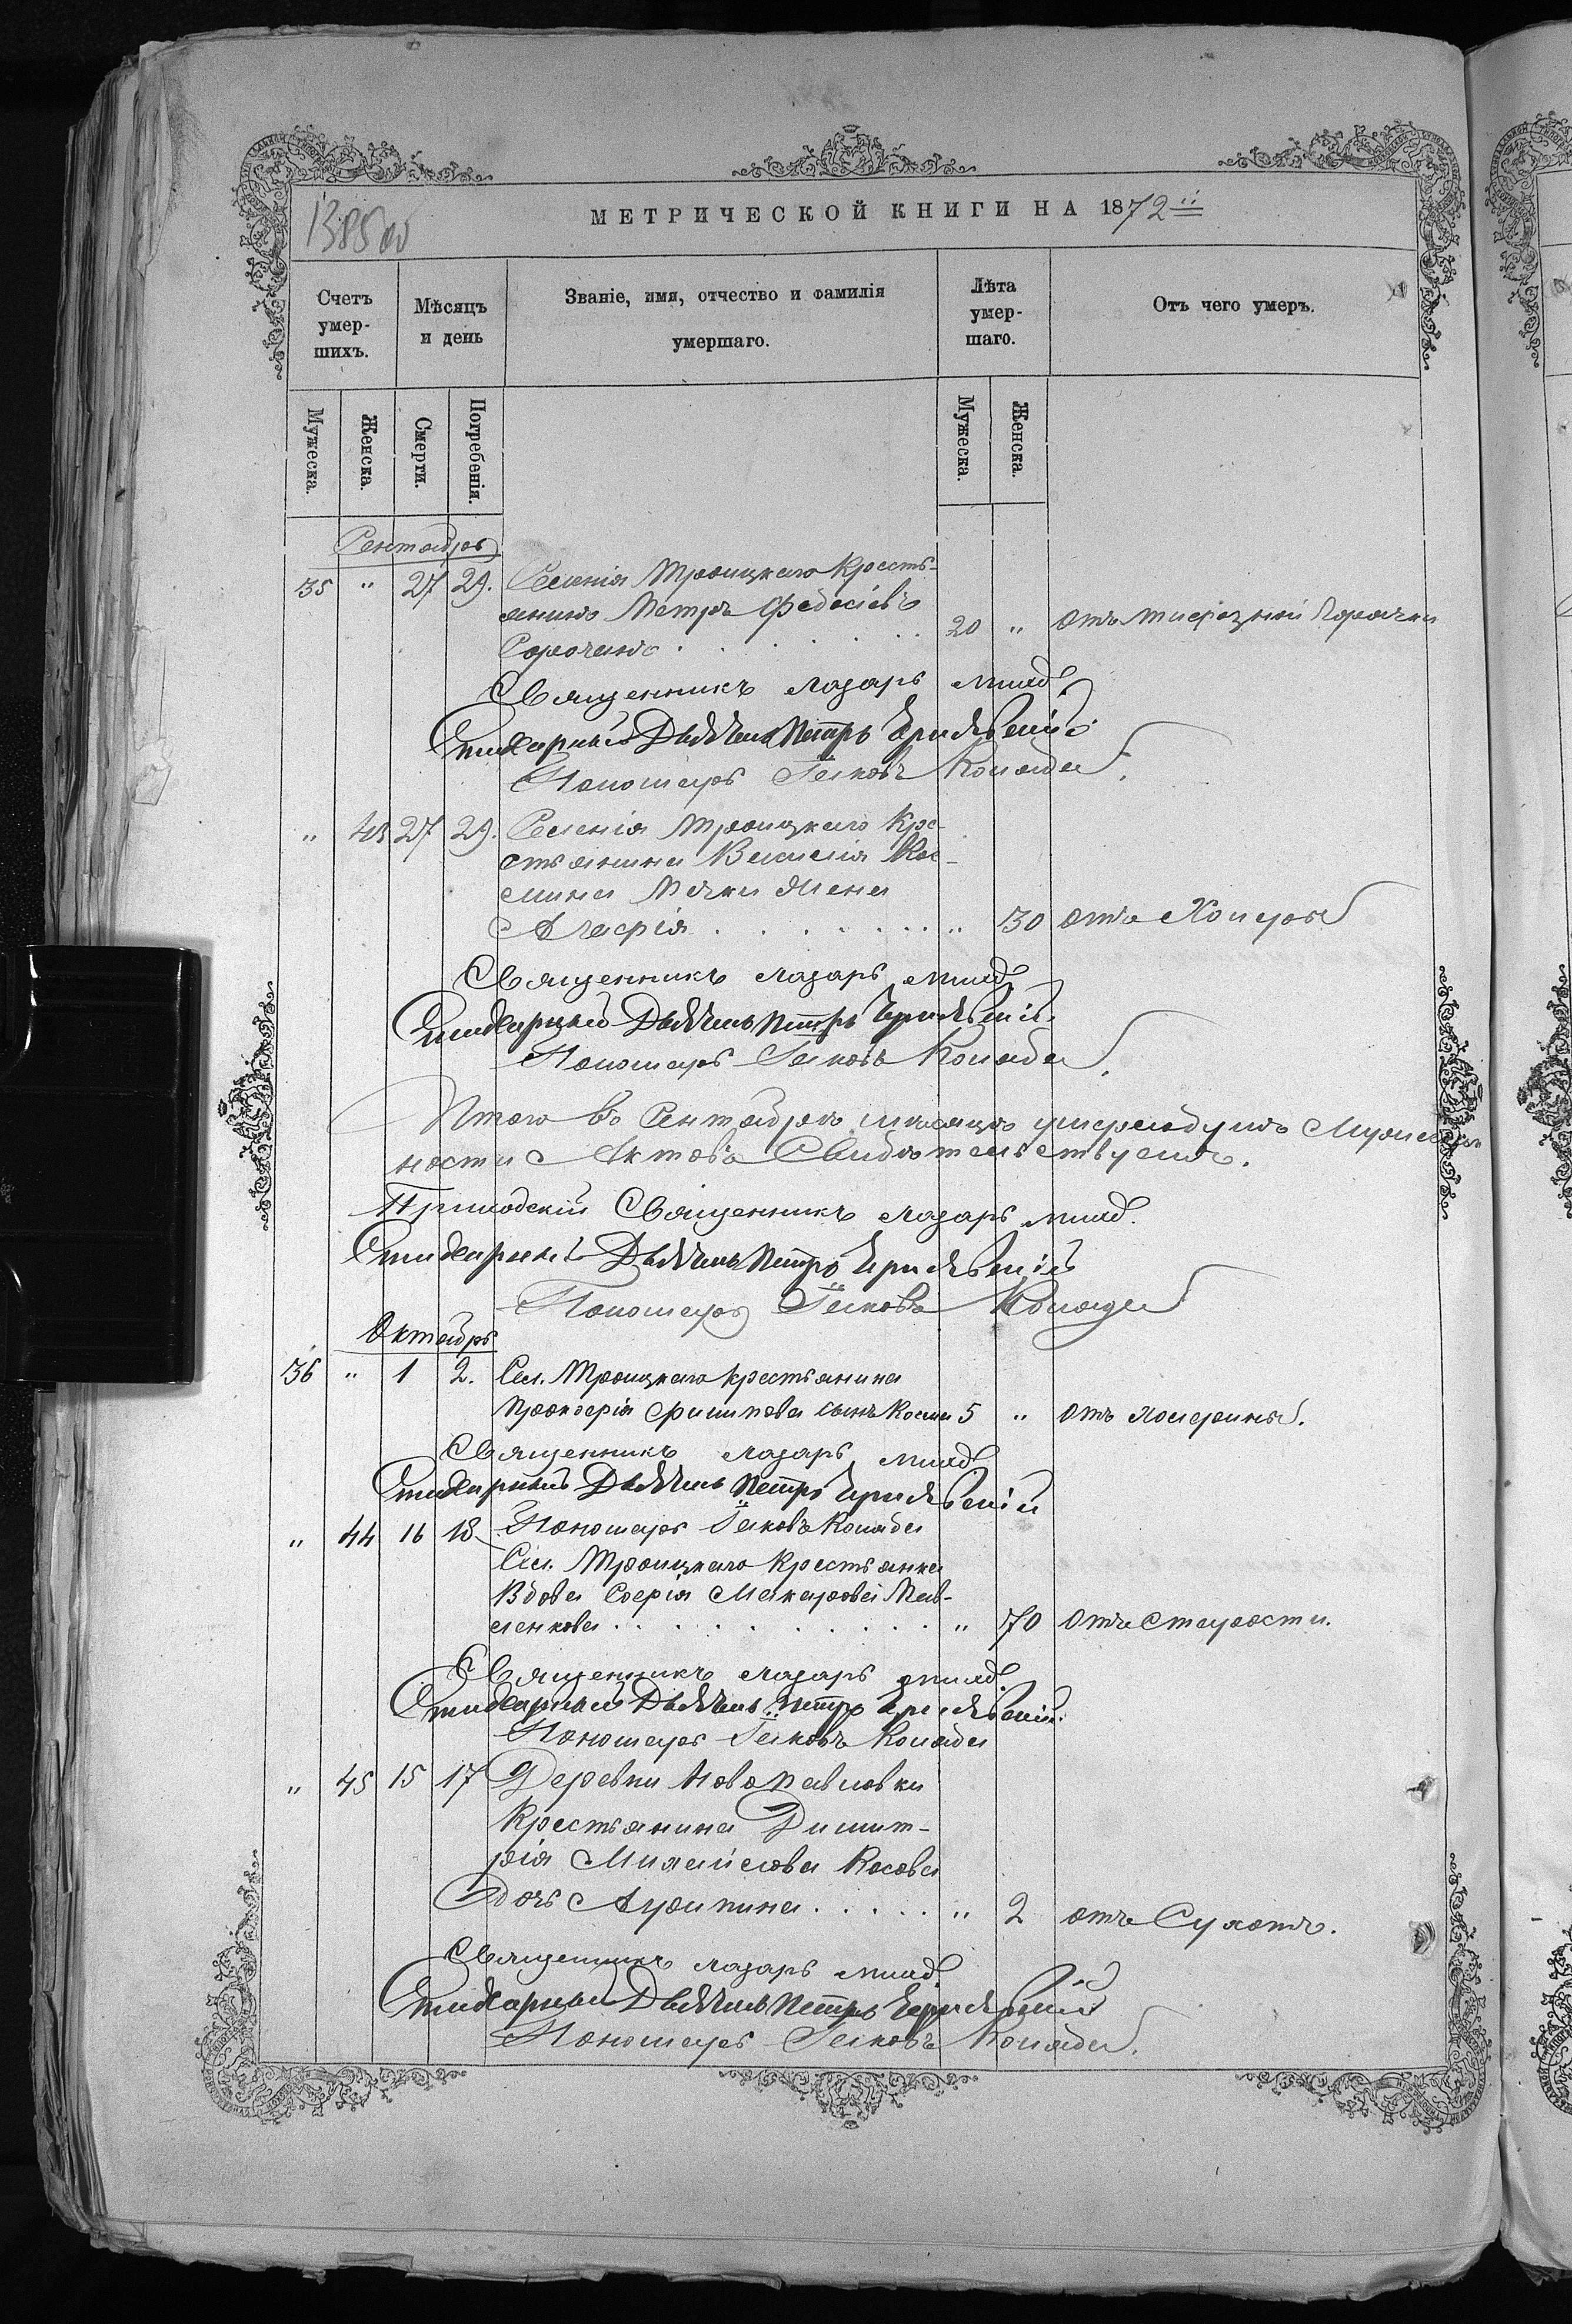 МЕТРИЧЕСКОЙ КНИГИ НА 1872й
Счетъ умер-шихъ.
Мѣсяцъ и день
Званіе, имя, отчество и фамилія умершаго.
Лѣта умер-шаго.
Отъ чего умеръ.
Мужеска.
Женска.
Смерти.
Погребенія.
Мужеска.
Женска.
Сентябрь
35 " 27 29. Селенія Троицкаго Кресть-
янинъ Петръ Федосіевъ
20 " отъ тифозной горячки
Священникъ Лазарь
Стихарный Дьячекъ Петръ
Пономарь Іаковъ Коляда.
" 43 27 29. Селенія Троицкаго Кре-
стьянина Василія Кос-
мина жена
Агафія . . . . . . . " 30 отъ Холеры
Священникъ Лазарь
Стихарный Дьячекъ Петръ
Пономарь Іаковъ Коляда.
Итого въ Сентябрѣ мѣсяцѣ
ности Актовъ Свидѣтельствуемъ.
Приходскій Священникъ Лазарь
Стихарный Дьячекъ Петръ
Пономарь Іаковъ Коляда
Октябрь
36 " 1 2. Сел. Троицкаго крестьянина
Прокофія Филипова сынъ Косма 5 " отъ холерины.
Священникъ Лазарь
Стихарный Дьячекъ Петръ
" 44 16 18 Пономарь Іаковъ Коляда
Сел. Троицкаго Крестьянка
Вдова Софія Макарова Пав-
ленкова . . . . . . . . . " 70 отъ Старости.
Священникъ Лазарь
Стихарный Дьячекъ Петръ
Пономарь Іаковъ Коляда
" 45 15 17 Деревни Новопавловки
Крестьянина Димит-
рія Михайлова Косова
дочь Агрипина . . . . . " 2 отъ Сухотъ.
Священникъ Лазарь
Стихарный Дьячекъ Петръ
Пономарь Іаковъ Коляда.